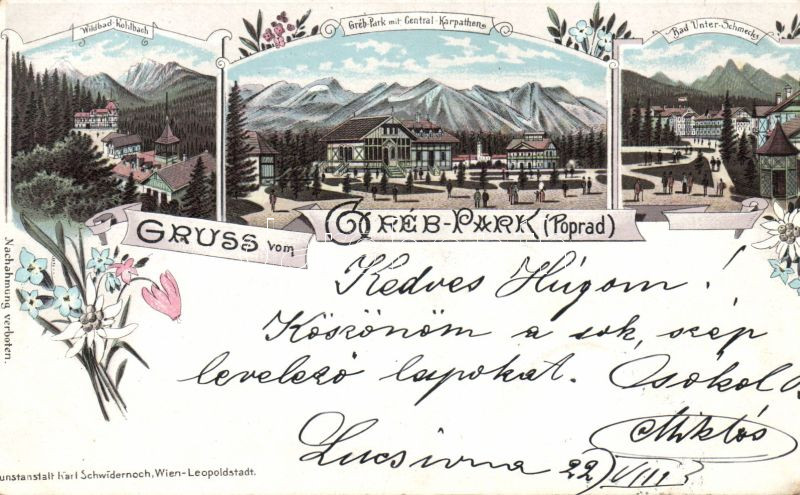 Wildbad-Kohlbach
Gréb-Park mit Central-Karpathen
Bad Unter-Schmecks
GRUSS vom GRÉB-PARK (Poprad)
Kedves Húgom!
Köszönöm a sok, szép
levelező lapokat. Csókol
Miklós
Lucsivna 22/VIII
Nachahmung verboten.
unstanstalt Karl Schwidernoch, Wien-Leopoldstadt.